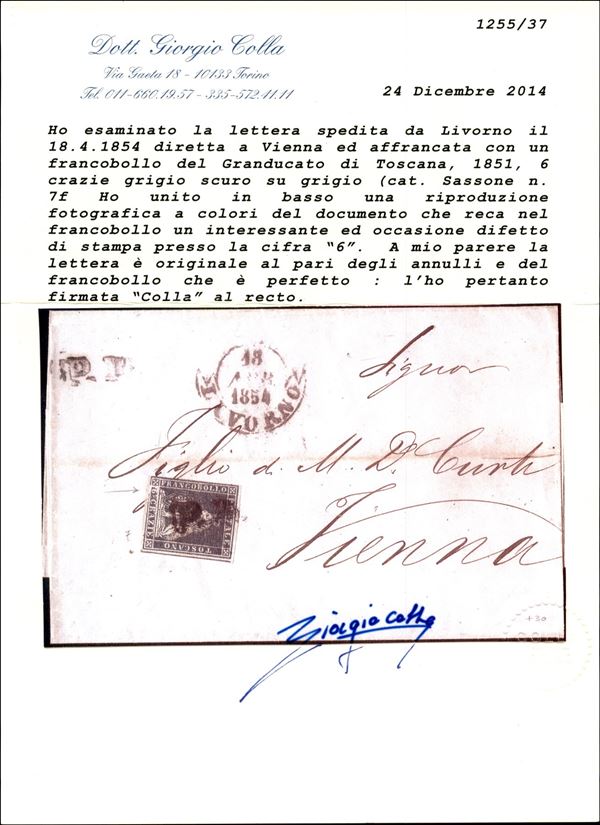 1255/37
Dott. Giorgio Colla
Via Gaeta 18 - 10133 Torino
Tel. 011-660.19.57 - 335-572.41.11
24 Dicembre 2014
Ho esaminato la lettera spedita da Livorno il
18.4.1854 diretta a Vienna ed affrancata con un
francobollo del Granducato di Toscana, 1851, 6
crazie grigio scuro su grigio (cat. Sassone n.
7f Ho unito in basso una riproduzione
fotografica a colori del documento che reca nel
francobollo un interessante ed occasione difetto
di stampa presso la cifra “6”. A mio parere la
lettera è originale al pari degli annulli e del
francobollo che è perfetto : l’ho pertanto
firmata “Colla” al recto.
P.P
18
APR
1854
LIVORNO
Signor
Figlio di M. D. Curti
FRANCOBOLLO
TOSCANO
Vienna
Giorgio Colla
+30